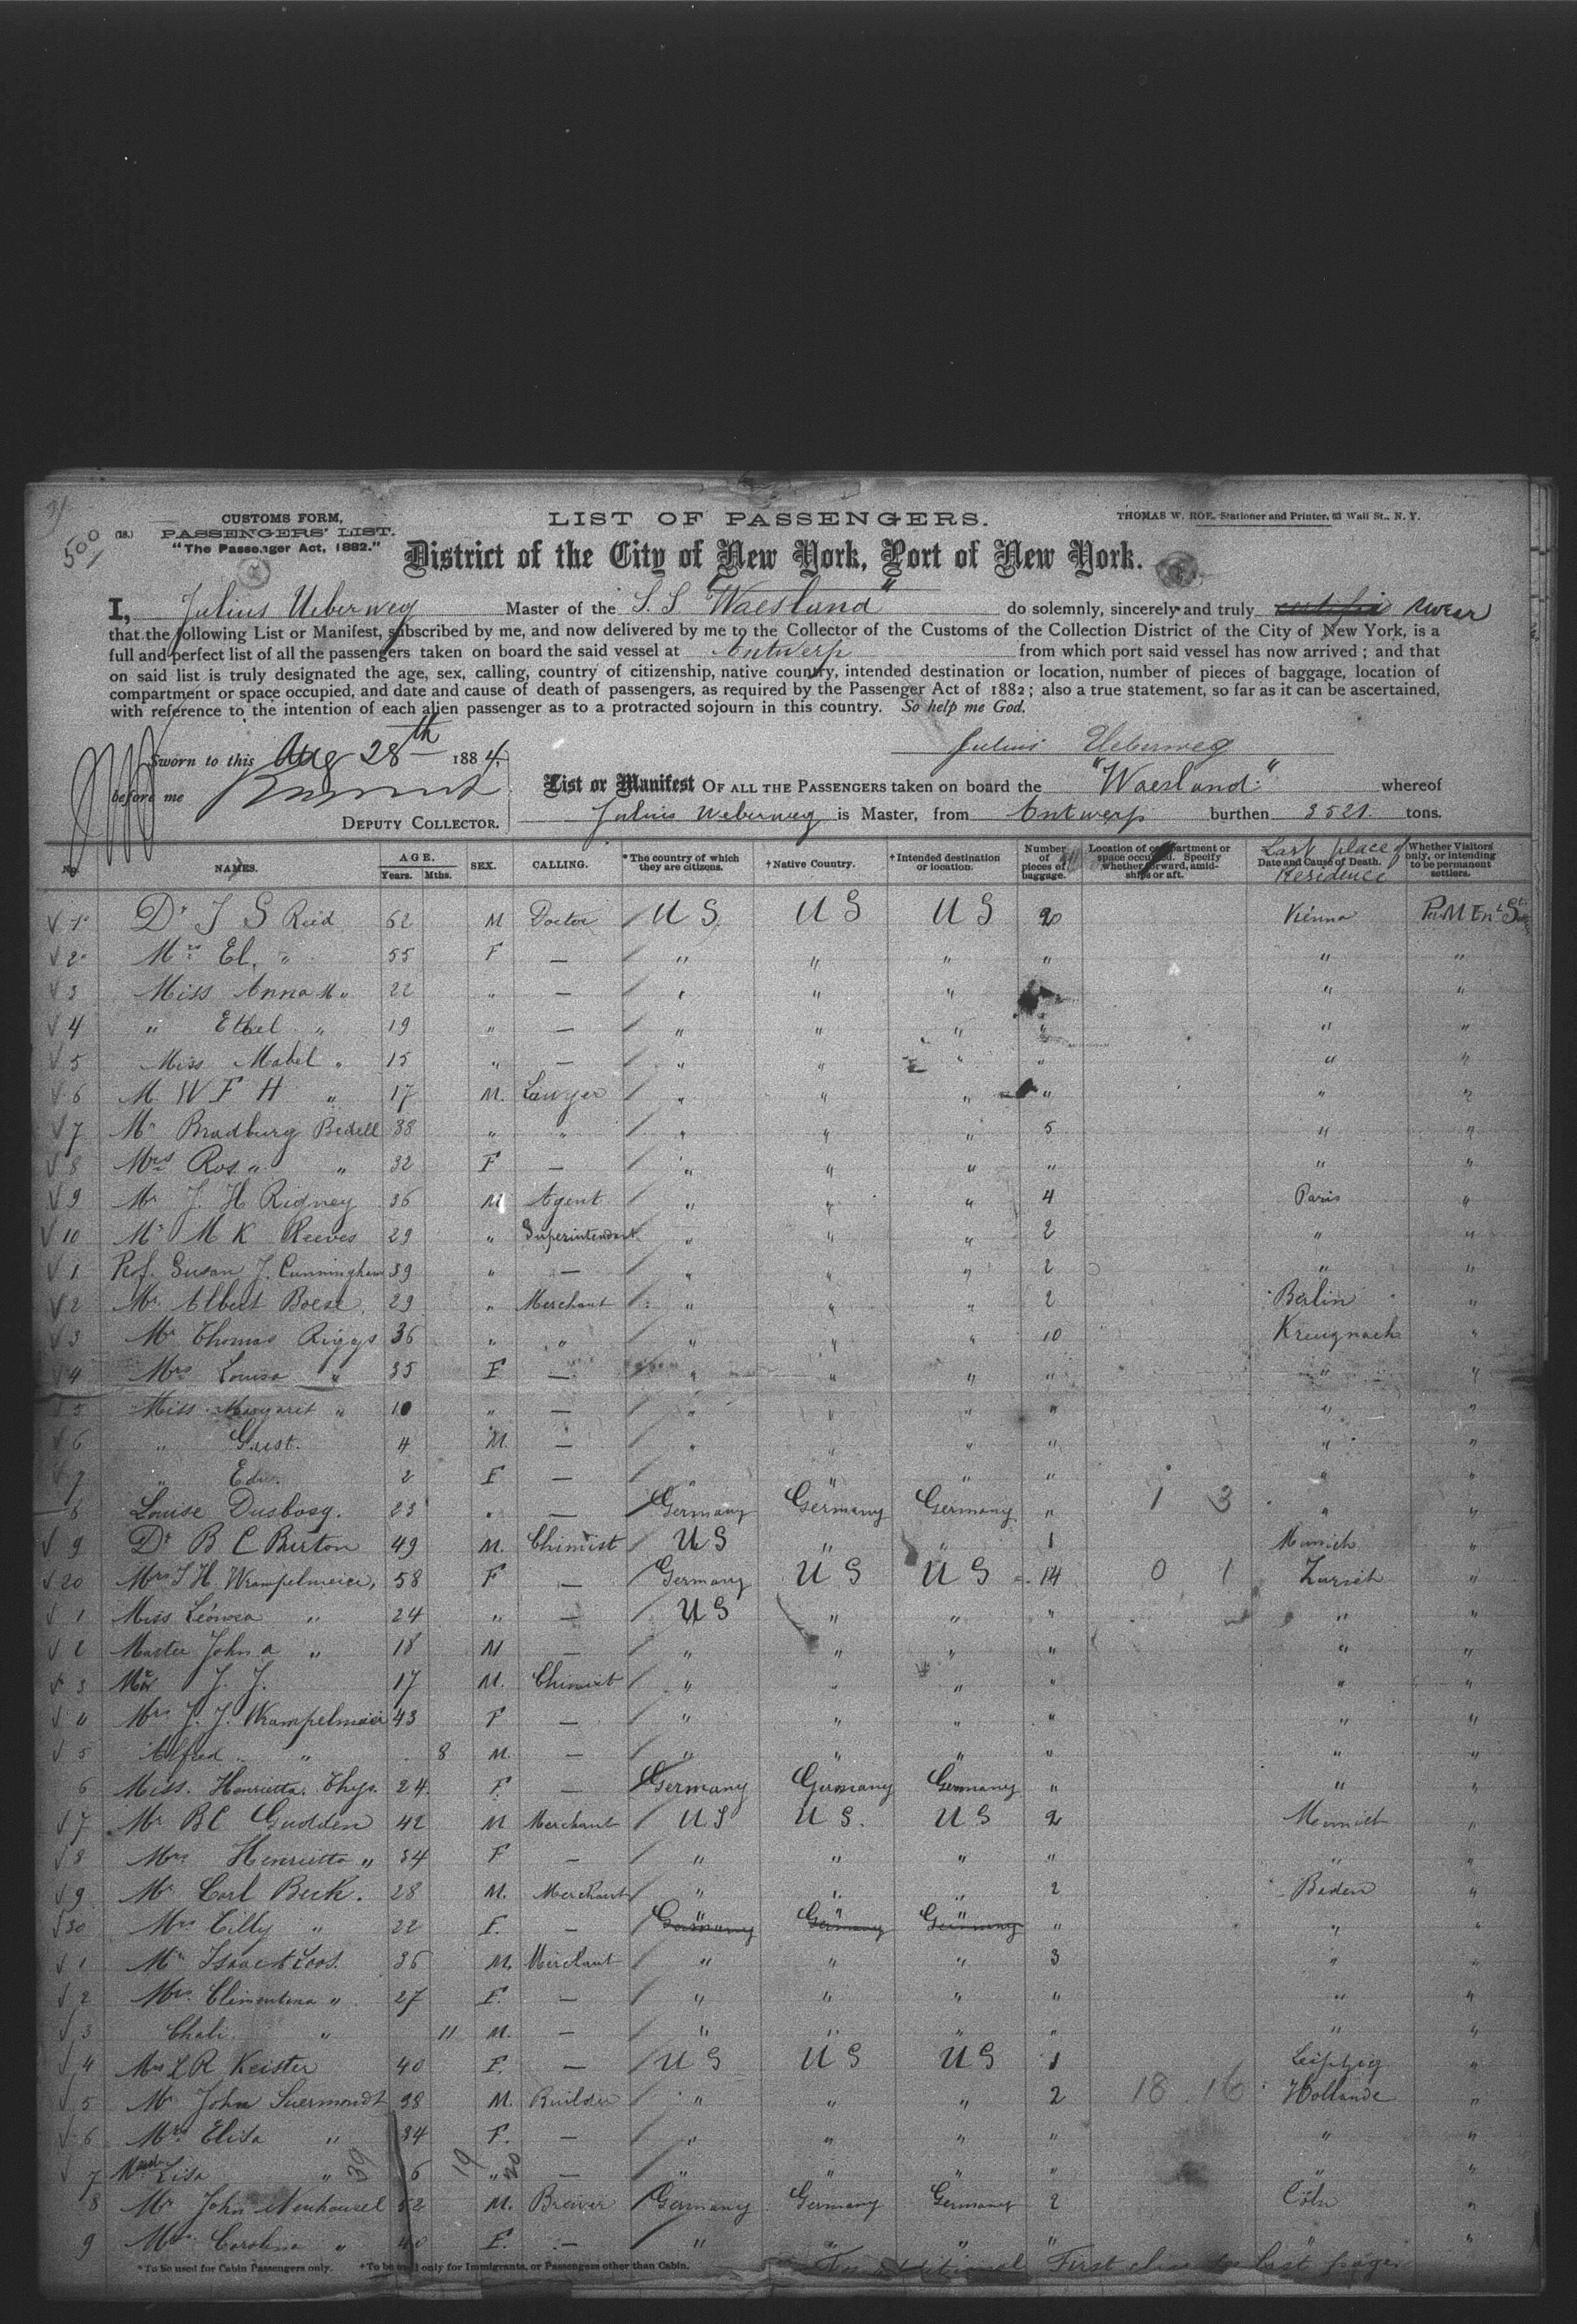 500
(18.)
CUSTOMS FORM,
PASSENGERS' LIST.
"The Passenger Act, 1882."
LIST OF PASSENGERS.
THOMAS W. ROE, Stationer and Printer, 63 Wall St., N. Y.
District of the City of New York, Port of New York.
I, Julius Ueberweg Master of the S.S "Waesland" do solemnly, sincerely and truly swear
that the following List or Manifest, subscribed by me, and now delivered by me to the Collector of the Customs of the Collection District of the City of New York, is a
full and perfect list of all the passengers taken on board the said vessel at Antwerp from which port said vessel has now arrived; and that
on said list is truly designated the age, sex, calling, country of citizenship, native country, intended destination or location, number of pieces of baggage, location of
compartment or space occupied, and date and cause of death of passengers, as required by the Passenger Act of 1882; also a true statement, so far as it can be ascertained,
with reference to the intention of each alien passenger as to a protracted sojourn in this country. So help me God.
Julius Ueberweg
Sworn to this Aug 28th 1884,
before me
DEPUTY COLLECTOR.
List or Manifest OF ALL THE PASSENGERS taken on board the "Waesland" whereof
Julius Ueberweg is Master, from Antwerp burthen 3521. tons.
No. NAMES. AGE. Years. Mths. SEX. CALLING. *The country of which they are citizens. †Native Country. †Intended destination or location. Number of pieces of baggage. Location of compartment or space occupied. Specify whether forward, amidships or aft. Last place of Residence Date and Cause of Death. Whether Visitors only, or intending to be permanent settlers.
1 Dr J S Reid 62 M Doctor U S U S U S 20 Vienna
2 Mrs El. " 55 F — " " " " " "
3 Miss Anna M " 22 " — " " " " "
4 " Ethel " 19 " — " " " " " "
5 Miss Mabel " 15 " — " " " " " "
6 M. W F H " 17 M. Lawyer " " " " " "
7 Mr Bradburg Bedell 38 " " " " " 5 " "
8 Mrs Ros " " 32 F — " " " " " "
9 Mr J. H Rigney 36 M Agent " " " 4 Paris "
10 Mr M K Reeves 29 " Superintendant " " " 2 " "
1 Prof. Susan J. Cunningham 39 " — " " " 2 " "
2 Mr Albert Boese. 29 " Merchant " " " 2 Berlin "
3 Mr Thomas Riggs 36 " " " " " 10 Kreuznach "
4 Mrs Louisa " 35 F — " " " " " "
5 Miss Margaret " 10 " — " " " " " "
6 " Gust. 4 M. — " " " " " "
7 " Edw. 2 F — " " " " " "
8 Louise Dusbosq. 23 " — Germany Germany Germany " 1 3 " "
9 Dr B C Burton 49 M. Chimist U S " " 1 Munich "
20 Mrs J H. Wrampelmeier, 58 F — Germany U S U S 14 0 1 Zurich "
1 Miss " 24 " — U S " " " " "
2 Master John a " 18 M — " " " " " "
3 Mr J. J. 17 M. Chimist " " " " " "
" Mrs J. J. Wrampelmeier 43 F — " " " " " "
5 Alfred " 8 M. — " " " " " "
6 Miss. Henrietta Thys. 24. F. — Germany Germany Germany " " "
7 Mr BC Gudden 42 M Merchant U S U S. U S 2 Munich "
8 Mrs Henrietta " 34 F — " " " " " "
9 Mr Carl Beck. 28 M. Merchant " " " 2 Baden "
30 Mrs Cilly " 22 F. — Germany Germany Germany " " "
1 Mr Isaac Loos. 36 M. Merchant " " " 3 " "
2 Mrs. Clementina " 27 F. — " " " " " "
3 " 11 M. — " " " " " "
4 Mrs L R Keister 40 F. — U S U S U S 1 Leipzig "
5 Mr John Suermondt 38 M. Builder " " " 2 18 16 Hollande "
6 Mrs Elisa " 34 F. — " " " " " "
7 Lisa " 6 " — " " " " " "
39 19 20
8 Mr John Neuhausel 52 M. Brewer Germany Germany Germany 2 Cöln "
9 Mrs. Carolina " 40 F. — " " " " " "
*To be used for Cabin Passengers only. †To be used only for Immigrants, or Passengers other than Cabin.
For additional First class see last page